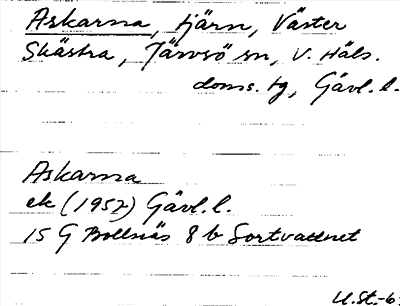 Askarna, tjärn, Väster
Skästra, Järvsö sn, V. Häls.
doms. tg, Gävl. l.
Askarna
ek (1957) Gävl. l.
15 G Bollnäs 8 b Sortvattnet
U.St.-6